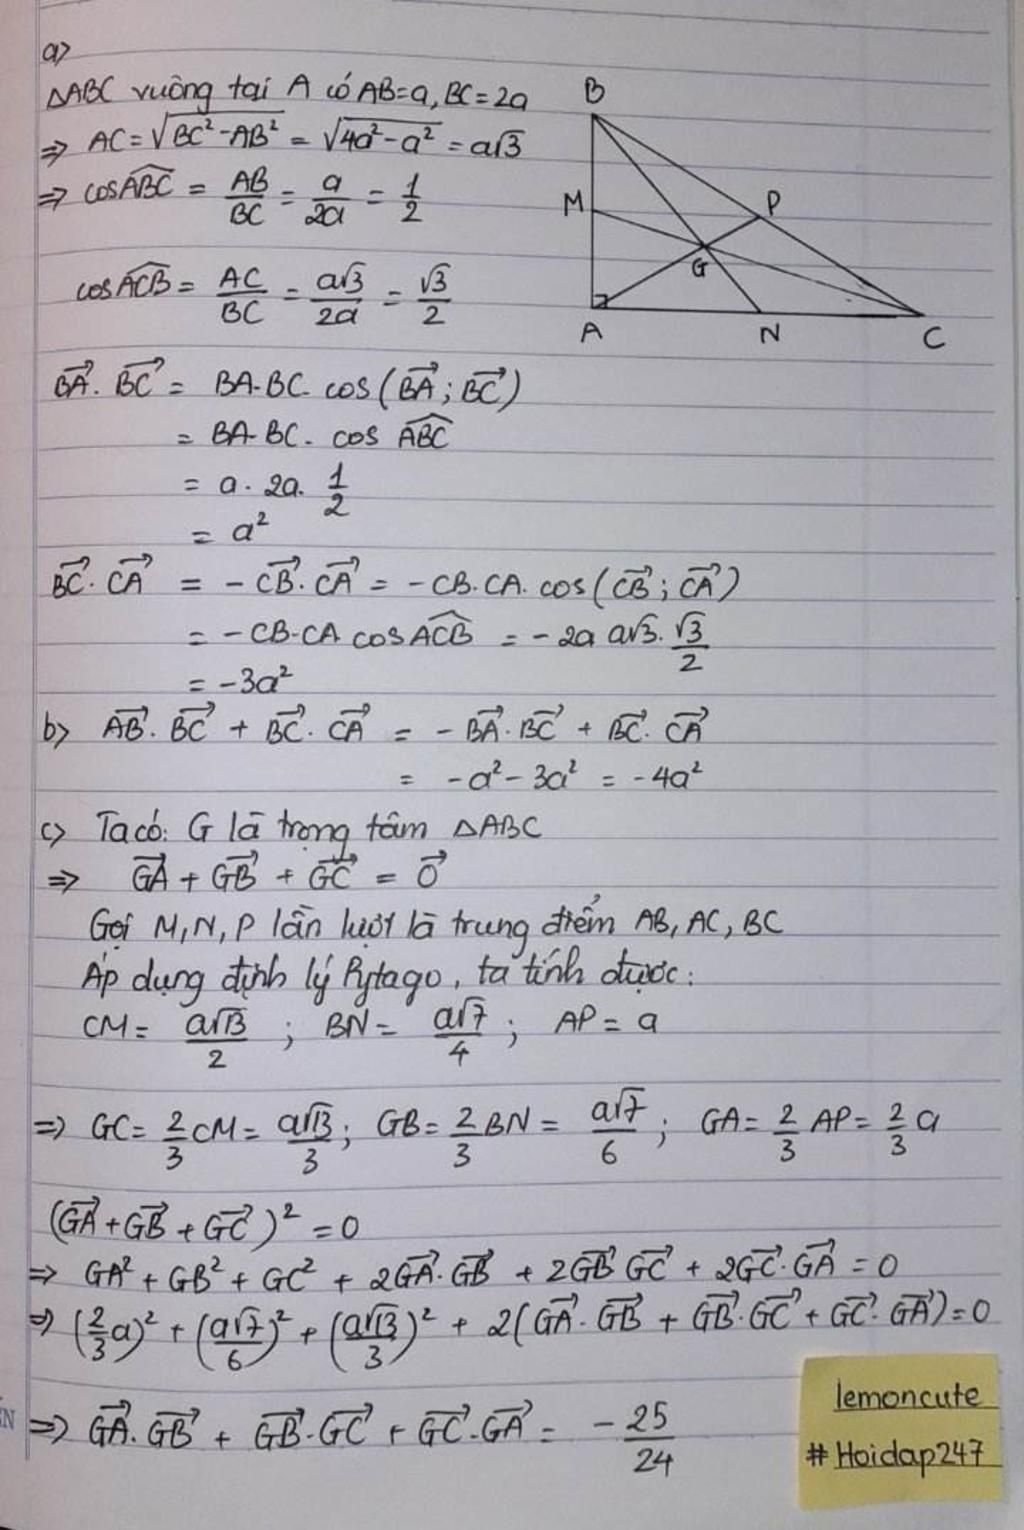 a>
△ABC vuông tại A có AB=a, BC=2a
B
⇒ AC=√(BC²-AB²) = √(4a²-a²) = a√3
⇒ cosABC = AB/BC = a/2a = 1/2
M
P
G
cosACB = AC/BC = a√3/2a = √3/2
A
N
C
BA→. BC→ = BA.BC. cos(BA→; BC→)
= BA.BC. cos ABC
= a. 2a. 1/2
= a²
BC→. CA→ = -CB→. CA→ = -CB.CA. cos(CB→; CA→)
= -CB.CA cosACB = -2a a√3. √3/2
= -3a²
b> AB→. BC→ + BC→. CA→ = -BA→. BC→ + BC→. CA→
= -a² - 3a² = -4a²
c> Ta có: G là trọng tâm △ABC
⇒ GA→ + GB→ + GC→ = 0→
Gọi M, N, P lần lượt là trung điểm AB, AC, BC
Áp dụng định lý Pytago, ta tính được:
CM = a√13/2 ; BN = a√7/4 ; AP = a
⇒ GC = 2/3 CM = a√13/3 ; GB = 2/3 BN = a√7/6 ; GA = 2/3 AP = 2/3 a
(GA→ + GB→ + GC→)² = 0
⇒ GA² + GB² + GC² + 2GA→. GB→ + 2GB→ GC→ + 2GC→. GA→ = 0
⇒ (2/3 a)² + (a√7/6)² + (a√13/3)² + 2(GA→. GB→ + GB→. GC→ + GC→. GA→) = 0
⇒ GA→. GB→ + GB→. GC→ + GC→. GA→ = -25/24
lemoncute
#Hoidap247